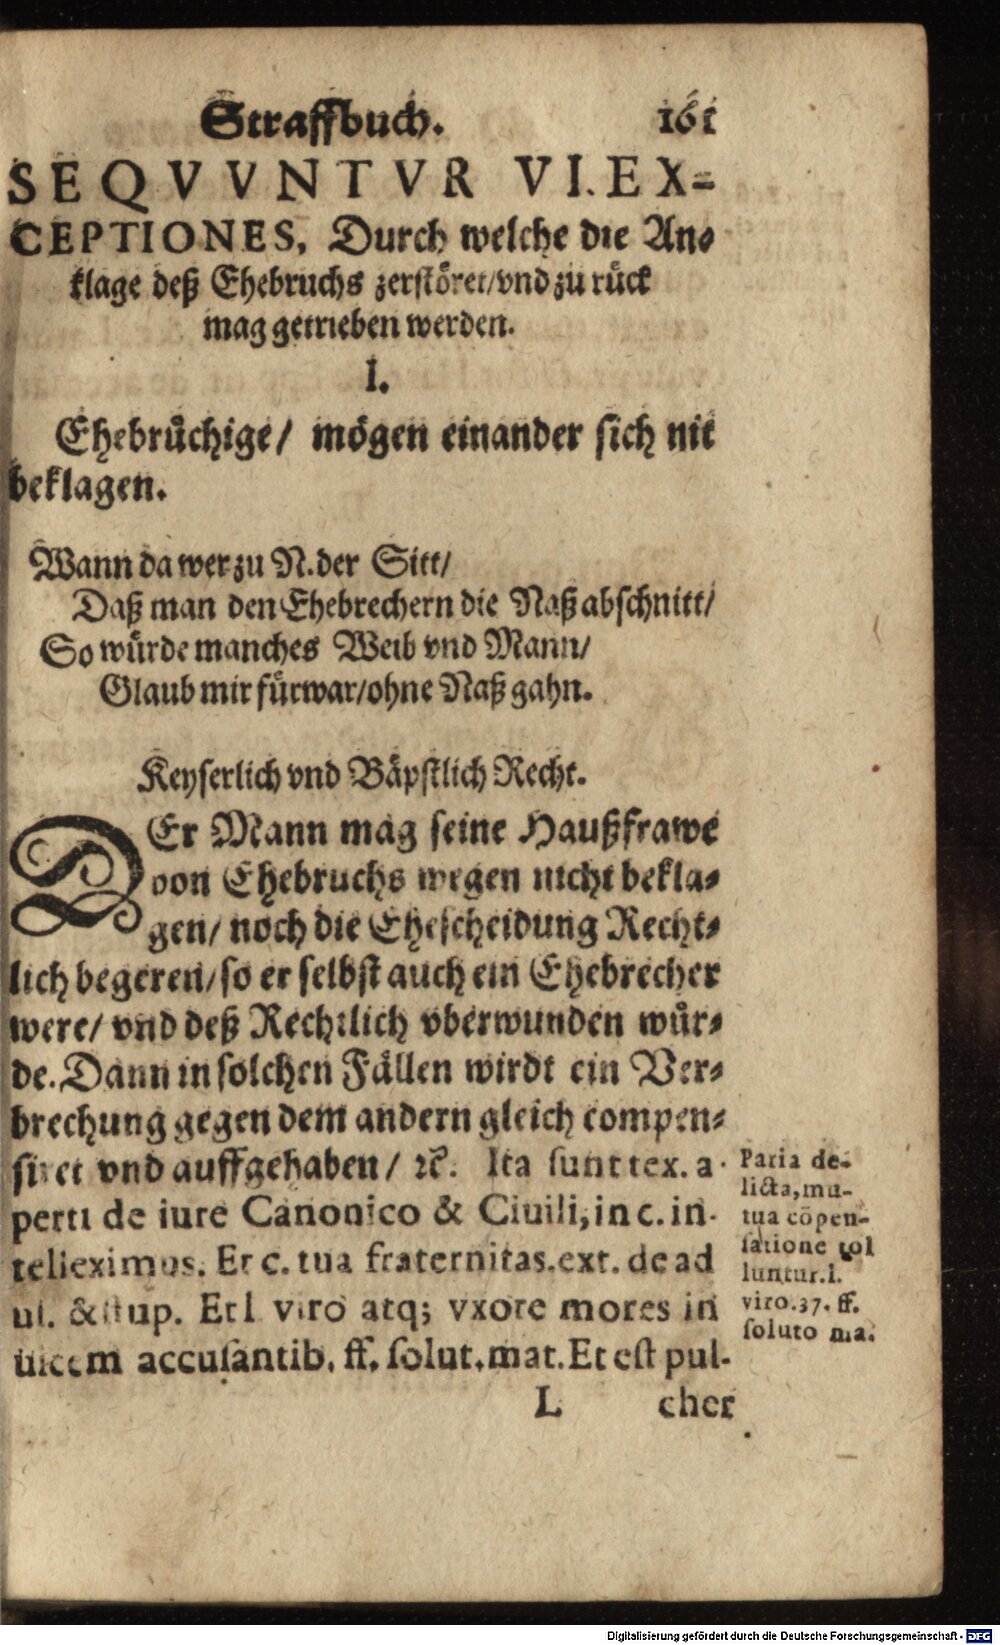 Straffbuch. 161
SEQVVNTVR VI. EX-
CEPTIONES, Durch welche die An-
klage deß Ehebruchs zerstöret/vnd zu rück
mag getrieben werden.
I.
Ehebrüchige/ mögen einander sich nit
beklagen.
Wann da wer zu N. der Sitt/
Daß man den Ehebrechern die Naß abschnitt/
So würde manches Weib vnd Mann/
Glaub mir fürwar/ohne Naß gahn.
Keyserlich vnd Bäpstlich Recht.
DEr Mann mag seine Haußfrawe
von Ehebruchs wegen nicht bekla-
gen/ noch die Ehescheidung Recht-
lich begeren/so er selbst auch ein Ehebrecher
were/ vnd deß Rechtlich vberwunden wür-
de. Dann in solchen Fällen wirdt ein Ver-
brechung gegen dem andern gleich compen-
siret vnd auffgehaben/ ꝛc. Ita sunt tex. a-
perti de iure Canonico & Ciuili, in c. in-
telleximus. Et c. tua fraternitas. ext. de ad
ul. & stup. Et l. viro atq; vxore mores in
uicem accusantib. ff. solut. mat. Et est pul-
L cher
Paria de-
licta, mu-
tua cōpen-
satione tol
luntur. l.
viro. 37. ff.
soluto ma.
Digitalisierung gefördert durch die Deutsche Forschungsgemeinschaft - DFG